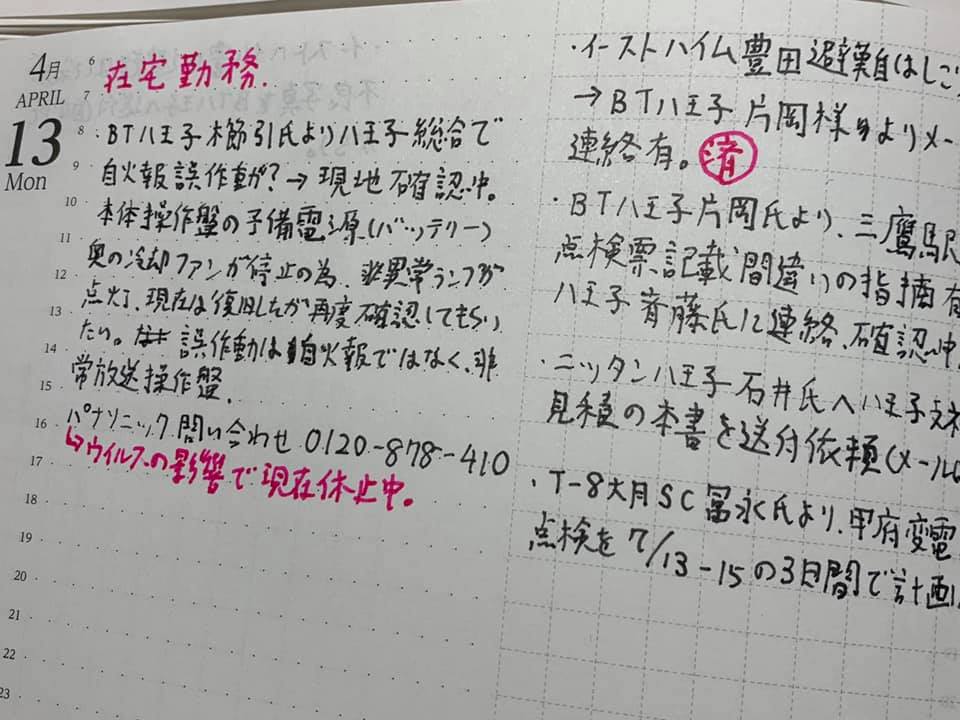 4月
APRIL
13
Mon
6
7
8
9
10
11
12
13
14
15
16
17
18
19
20
21
22
23
在宅勤務.
・BT八王子 櫛引氏より八王子総合で
自火報誤作動か?→現地確認中。
本体操作盤の予備電源(バッテリー)
奥の冷却ファンが停止の為、非異常ランプが
点灯、現在は復旧したが再度確認してもらい
たい。なお誤作動は自火報ではなく、非
常放送操作盤.
パナソニック問い合わせ 0120-878-410
↳ウイルスの影響で現在休止中。
・イーストハイム豊田避難はしご
→BT八王子 片岡様よりメー
連絡有。済
・BT八王子片岡氏より、三鷹駅
点検票記載間違いの指摘有
八王子斉藤氏に連絡、確認中.
・ニッタン八王子石井氏へ八王子支社
見積の本書を送付依頼(メール
・T-8大月SC冨永氏より、甲府変電
点検を7/13-15の3日間で計画